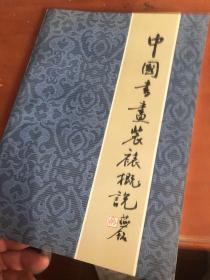 中國書畫裝裱概說